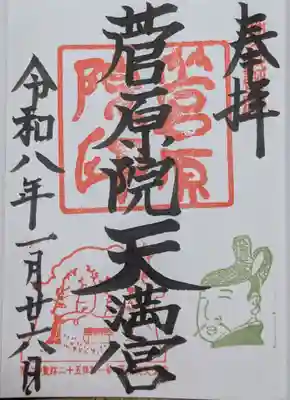 奉拝
菅原院天満宮
令和八年一月廿六日
菅原院印